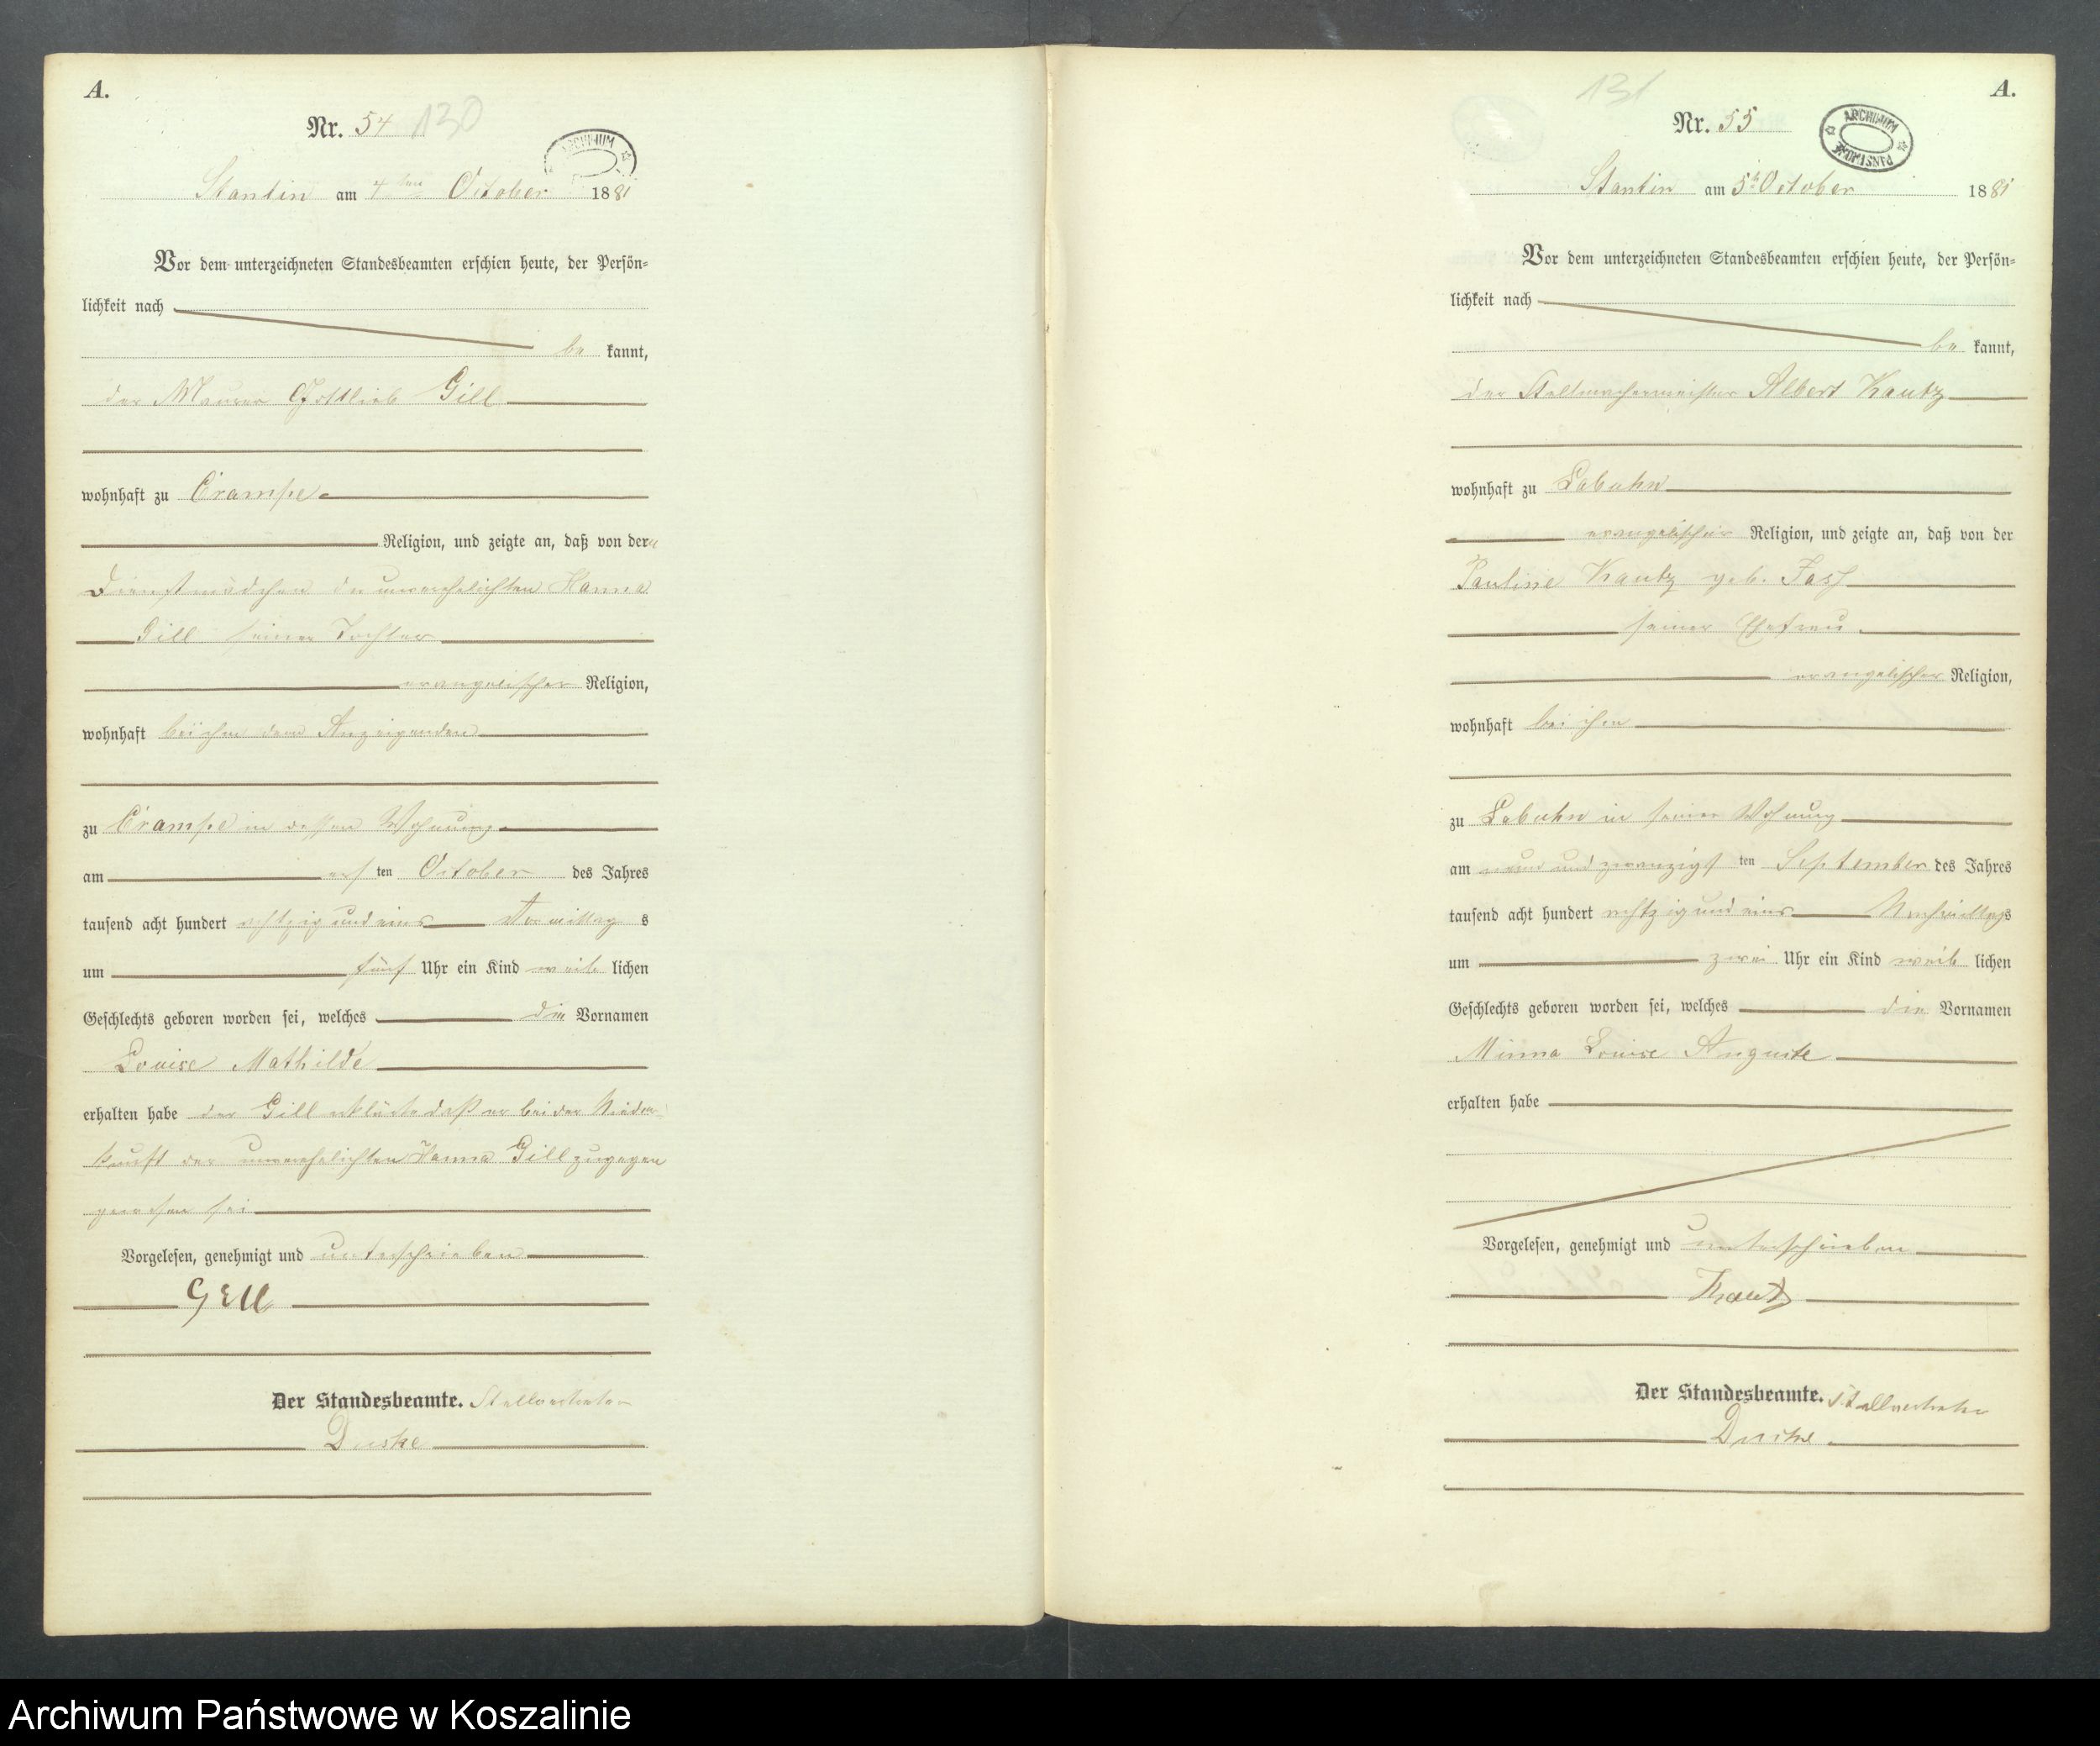 A.
Nr. 54 130
ARCHIWUM
Stantin am 4ten October 1881
Vor dem unterzeichneten Standesbeamten erschien heute, der Persön-
lichkeit nach
be kannt,
der Maurer Gottlieb Gill
wohnhaft zu Crampe
Religion, und zeigte an, daß von der
Dienstmädchen der unverehelichten Hanna
Gill seiner Tochter
evangelischer Religion,
wohnhaft bei ihm dem Anzeigenden
zu Crampe in dessen Wohnung
am ersten October des Jahres
tausend acht hundert achtzig und eins Vormittags
um fünf Uhr ein Kind weib lichen
Geschlechts geboren worden sei, welches die Vornamen
Louise Mathilde
erhalten habe der Gill erklärte daß er bei der Nieder
kunft der unverehelichten Hanna Gill zugegen
gewesen sei
Vorgelesen, genehmigt und unterschrieben
Gill
Der Standesbeamte. Stellvertreter
A.
131
Nr. 55
ARCHIWUM PAŃSTWOWE
Stantin am 5t October 1881
Vor dem unterzeichneten Standesbeamten erschien heute, der Persön-
lichkeit nach
be kannt,
der Stellmachermeister Albert Kautz
wohnhaft zu Labuhn
evangelischer Religion, und zeigte an, daß von der
Pauline Kautz geb.
seiner Ehefrau
evangelischer Religion,
wohnhaft bei ihm
zu Labuhn in seiner Wohnung
am neun und zwanzigsten September des Jahres
tausend acht hundert achtzig und eins Nachmittags
um zwei Uhr ein Kind weib lichen
Geschlechts geboren worden sei, welches die Vornamen
Minna Louise Auguste
erhalten habe
Vorgelesen, genehmigt und unterschrieben
Kautz
Der Standesbeamte. Stellvertreter
Archiwum Państwowe w Koszalinie